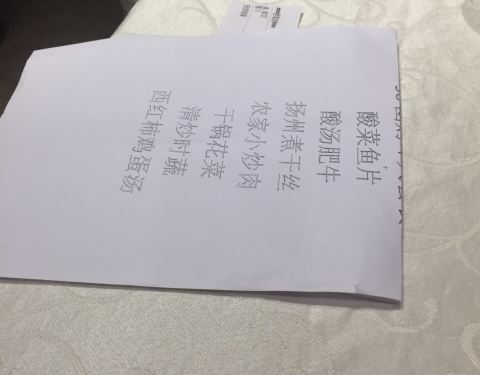 酸菜鱼片
酸汤肥牛
扬州煮干丝
农家小炒肉
干锅花菜
清炒时蔬
西红柿鸡蛋汤